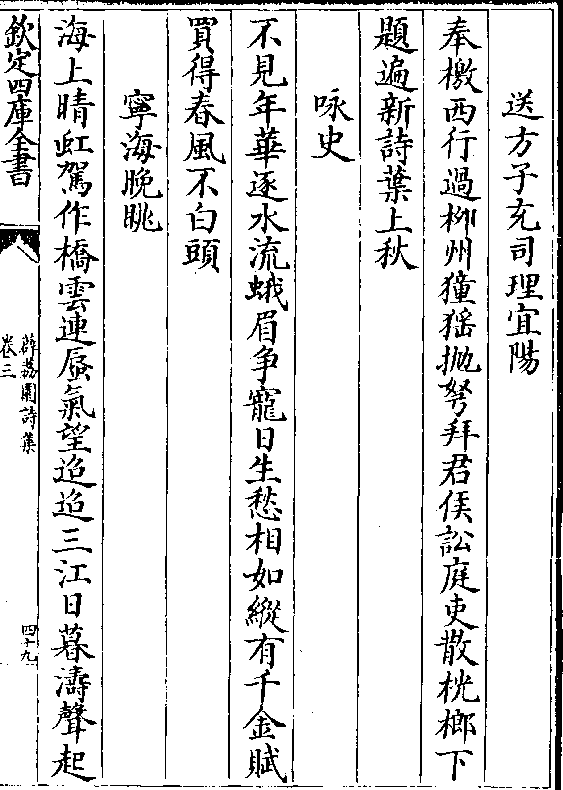 送方子充司理宜陽
奉檄西行過柳州獞猺拋弩拜君侯訟庭吏散桄榔下
題遍新詩葉上秋
咏史
不見年華逐水流蛾眉争寵日生愁相如縱有千金賦
買得春風不白頭
寧海晚眺
海上晴虹駕作橋雲連蜃氣望迢迢三江日暮濤聲起
欽定四庫全書
薜荔園詩集
卷三
四十九